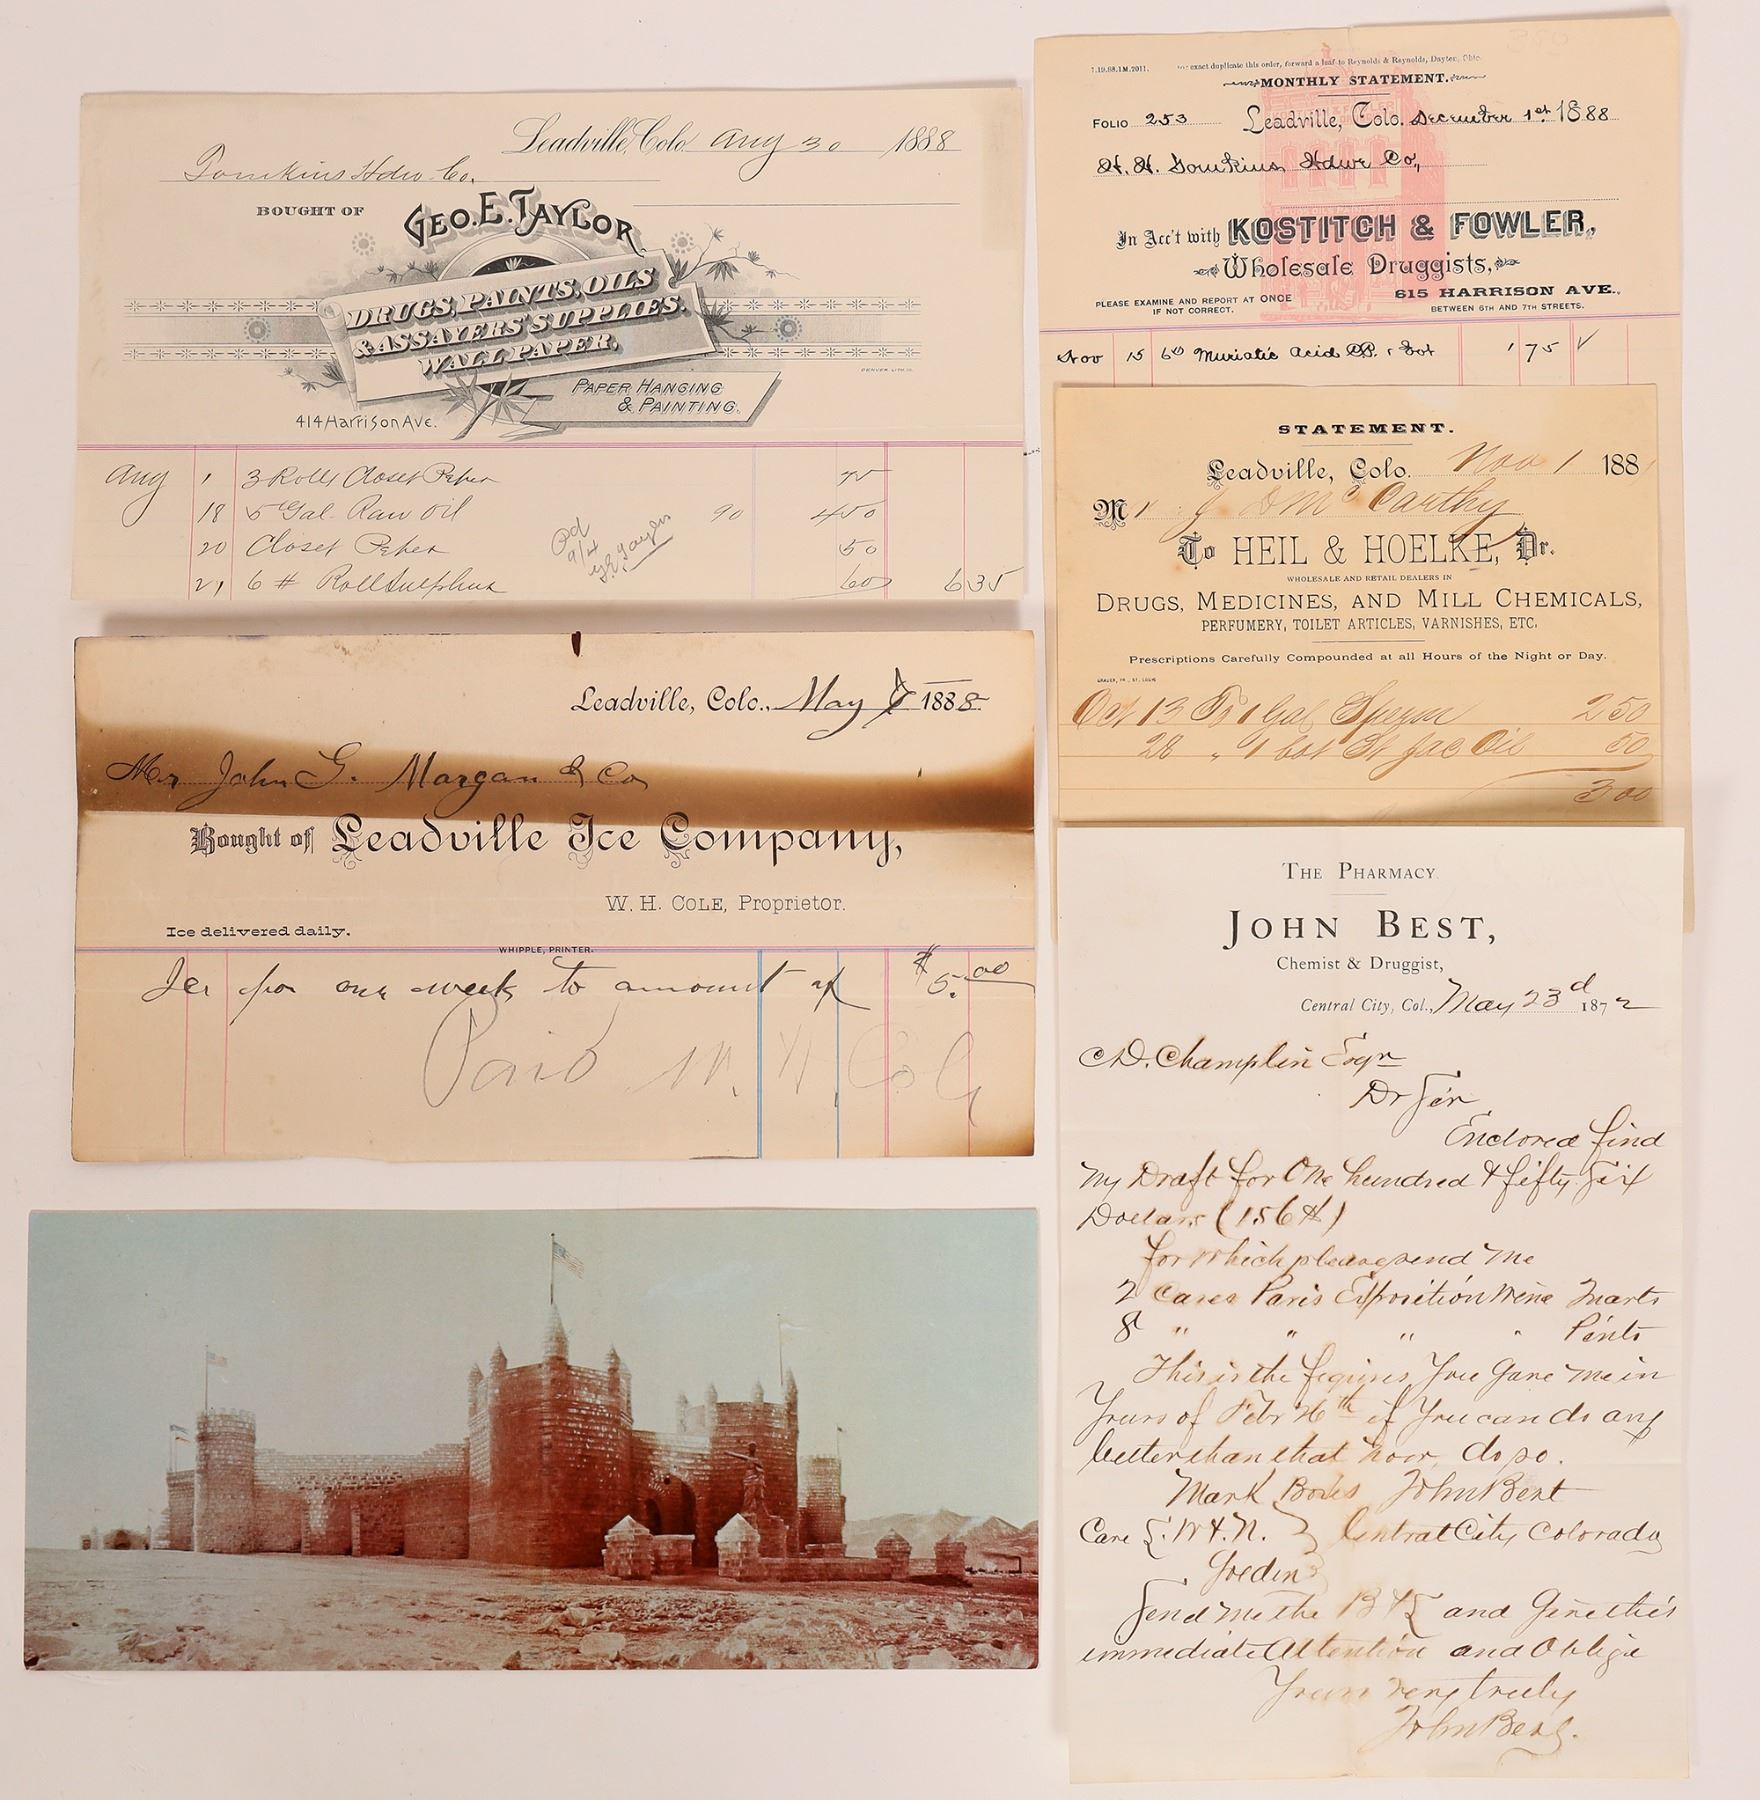 Leadville, Colo. Aug 30 1888
Tomkins Hdw. Co.
BOUGHT OF
GEO. E. TAYLOR.
DRUGS, PAINTS, OILS
& ASSAYERS' SUPPLIES.
WALL PAPER,
DENVER LITH. CO.
PAPER HANGING
& PAINTING.
414 Harrison Ave.
Aug 1 3 Rolls Closet Paper 75
18 5 Gal. Raw Oil 90 450
20 Closet Paper 50
21 6 # Roll Sulphur 60 6 35
Pd
9/4
Leadville, Colo., May 1888
Mr John G. Morgan & Co
Bought of Leadville Ice Company,
W. H. COLE, Proprietor.
Ice delivered daily.
WHIPPLE, PRINTER.
Ice for one week to amount of $5.00
Paid W. H. Cole
7.19.88.1M.2011. exact duplicate this order, forward a leaf to Reynolds & Reynolds, Dayton, Ohio.
MONTHLY STATEMENT.
FOLIO 253 Leadville, Colo. December 1st 1888
H. H. Tomkins Hdwe Co,
In Acc't with KOSTITCH & FOWLER,
Wholesale Druggists,
PLEASE EXAMINE AND REPORT AT ONCE
IF NOT CORRECT.
615 HARRISON AVE.,
BETWEEN 6TH AND 7TH STREETS.
Nov 15 6# Muriatic Acid CP. & bot 1 75
STATEMENT.
Leadville, Colo. Nov 1 188
Mr J D McCarthy
To HEIL & HOELKE, Dr.
WHOLESALE AND RETAIL DEALERS IN
DRUGS, MEDICINES, AND MILL CHEMICALS,
PERFUMERY, TOILET ARTICLES, VARNISHES, ETC.
Prescriptions Carefully Compounded at all Hours of the Night or Day.
Oct 13 To 1 Gal Sperm 2 50
28 " 1 bot St Jac Oil 50
3 00
THE PHARMACY
JOHN BEST,
Chemist & Druggist,
Central City, Col., May 23d 1872
Champlin Esqr
Dr Sir
Enclosed find
my Draft for One hundred & fifty Six
Dollars (156 $)
for which please send me
2 Cases Paris Exposition Wine Quarts
8 " " " " Pints
This is the figures You gave me in
Yours of Febr 26th if You can do any
better than that now, do so.
Mark Boxes John Best
Care Central City Colorado
Send me the B & L and Give this
immediate Attention and Oblige
Yours very truly
John Best.